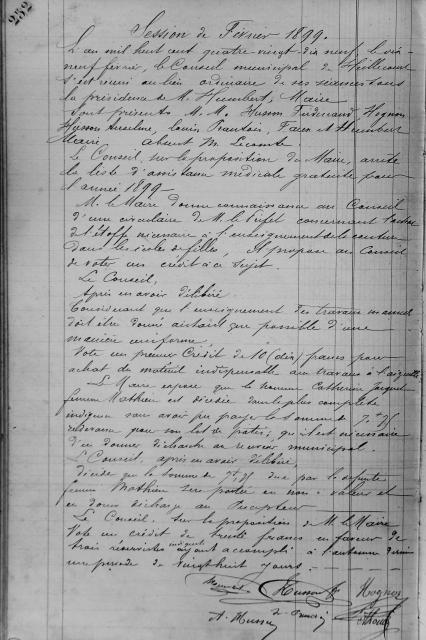 252
Session de Février 1899.
L'an mil huit cent quatre-vingt-dix neuf, le dix-
neuf février, le Conseil municipal de
s'est réuni au lieu ordinaire de ses séances sous
la présidence de M. Humbert, Maire
Sont présents M. M. Husson Ferdinand, Hognon
Husson Louis et Humbert
Maire Absent M. Lecomte.
Le Conseil, sur la proposition du Maire, arrête
la liste d'assistance médicale gratuite pour
l'année 1899
M. le Maire donne connaissance au Conseil
d'une circulaire de M. le Préfet concernant l'achat
de l'étoffe nécessaire à l'enseignement de la couture
dans les écoles de filles, et propose au Conseil
de voter un crédit à ce sujet.
Le Conseil,
Après en avoir délibéré
Considérant que l'enseignement des travaux manuels
doit être donné autant que possible d'une
manière uniforme,
Vote un premier Crédit de 10 (dix) francs pour
achat du matériel indispensable aux travaux à l'aiguille
Le Maire expose que la nommée Catherine
femme Mathieu est décédée dans la plus complète
indigence sans avoir pu payer la somme de 7
pour un lot de ; qu'il est nécessaire
d'en donner décharge au receveur municipal.
Le Conseil, après en avoir délibéré,
décide que la somme de 7 due par la défunte
femme Mathieu sera portée en non-valeur et
en donne décharge au Percepteur.
Le Conseil, sur la proposition de M. le Maire
Vote un crédit de trente francs en faveur de
trois réservistes indigents ayant accompli à l'automne dernier
une période de vingt huit jours.
Husson F Hognon
A. Husson